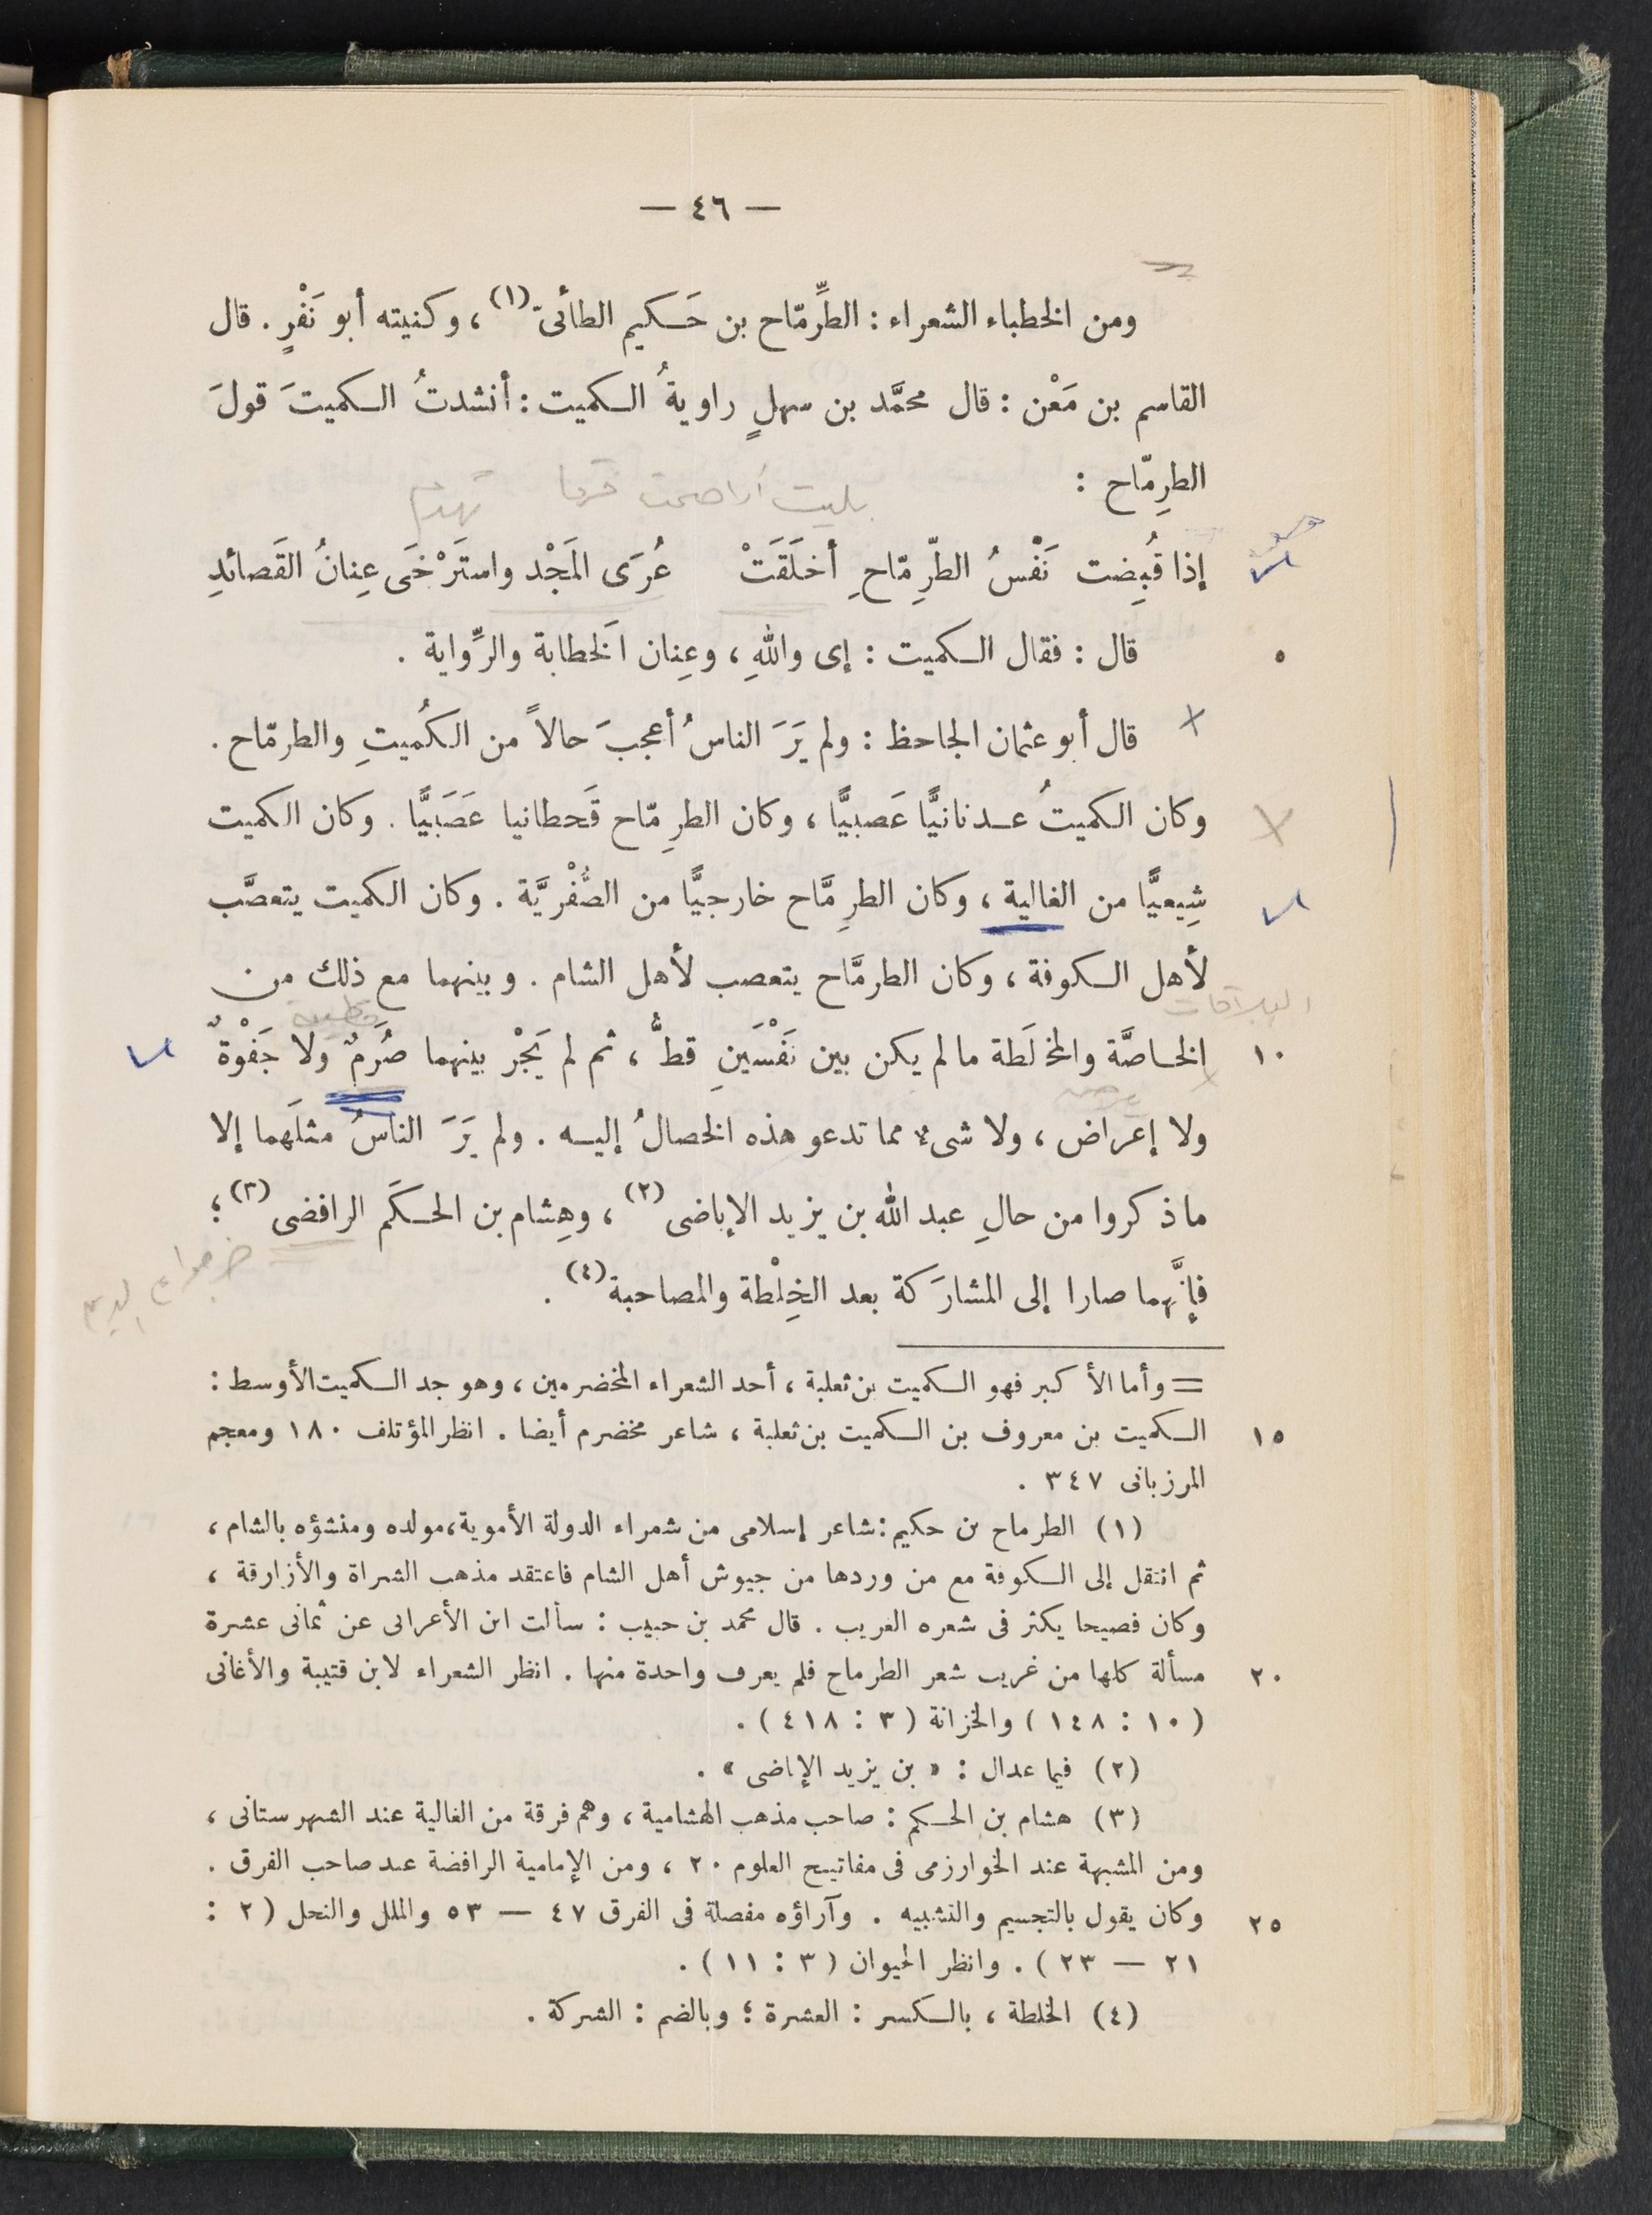 — ٤٦ —
ومن الخطباء الشعراء : الطِّرِمّاح بن حَكيم الطائىّ(١) ، وكنيته أبو نَفْرٍ . قال
القاسم بن مَعْن : قال محمَّد بن سهلٍ راويةُ الكميت : أنشدتُ الكميتَ قولَ
الطرِمّاح :
إذا قُبِضت نَفْسُ الطّرِمّاحِ أخلَقَتْ عُرَى المَجْد واستَرْخَى عِنانُ القَصائدِ
٥ قال : فقال الكميت : إى واللهِ ، وعِنان الَخطابة والرِّواية .
قال أبو عثمان الجاحظ : ولم يَرَ الناسُ أعجبَ حالاً من الكُميتِ والطرمّاح .
وكان الكميتُ عدنانيًّا عَصبيًّا ، وكان الطرِمّاح قَحطانيا عَصَبيًّا . وكان الكميت
شِيعيًّا من الغالية ، وكان الطرِمَّاح خارجيًّا من الصُّفْريَّة . وكان الكميت يتعصَّب
لأهل الكوفة ، وكان الطرمَّاح يتعصب لأهل الشام . وبينهما مع ذلك من
١٠ الخاصَّة والمخلَطة ما لم يكن بين نَفْسَينِ قطُّ ، ثم لم يَجْرِ بينهما صُرَمٌ ولا جَفْوةٌ
ولا إعراض ، ولا شىء مما تدعو هذه الخصالُ إليه . ولم يَرَ الناسُ مثلَهما إلا
ما ذكروا من حالِ عبد الله بن يزيد الإباضى(٢) ، وهِشام بن الحكَم الرافضى(٣) ؛
فإنَّهما صارا إلى المشارَكة بعد الخِلْطة والمصاحبة(٤) .
= وأما الأكبر فهو الكميت بن ثعلبة ، أحد الشعراء المخضرمين ، وهو جد الكميت الأوسط :
١٥ الكميت بن معروف بن الكميت بن ثعلبة ، شاعر مخضرم أيضا . انظر المؤتلف ١٨٠ ومعجم
المرزبانى ٣٤٧ .
(١) الطرماح بن حكيم : شاعر إسلامى من شعراء الدولة الأموية ، مولده ومنشؤه بالشام ،
ثم انتقل إلى الكوفة مع من وردها من جيوش أهل الشام فاعتقد مذهب الشراة والأزارقة ،
وكان فصيحا يكثر فى شعره الغريب . قال محمد بن حبيب : سألت ابن الأعرابى عن ثمانى عشرة
٢٠ مسألة كلها من غريب شعر الطرماح فلم يعرف واحدة منها . انظر الشعراء لابن قتيبة والأغانى
( ١٠ : ١٤٨ ) والخزانة ( ٣ : ٤١٨ ) .
(٢) فيما عدا ل : « بن يزيد الإباضى » .
(٣) هشام بن الحكم : صاحب مذهب الهشامية ، وهم فرقة من الغالية عند الشهرستانى ،
ومن المشبهة عند الخوارزمى فى مفاتيح العلوم ٢٠ ، ومن الإمامية الرافضة عند صاحب الفرق .
٢٥ وكان يقول بالتجسيم والتشبيه . وآراؤه مفصلة فى الفرق ٤٧ — ٥٣ والملل والنحل ( ٢ :
٢١ — ٢٣ ) . وانظر الحيوان ( ٣ : ١١ ) .
(٤) الخلطة ، بالكسر : العشرة ؛ وبالضم : الشركة .